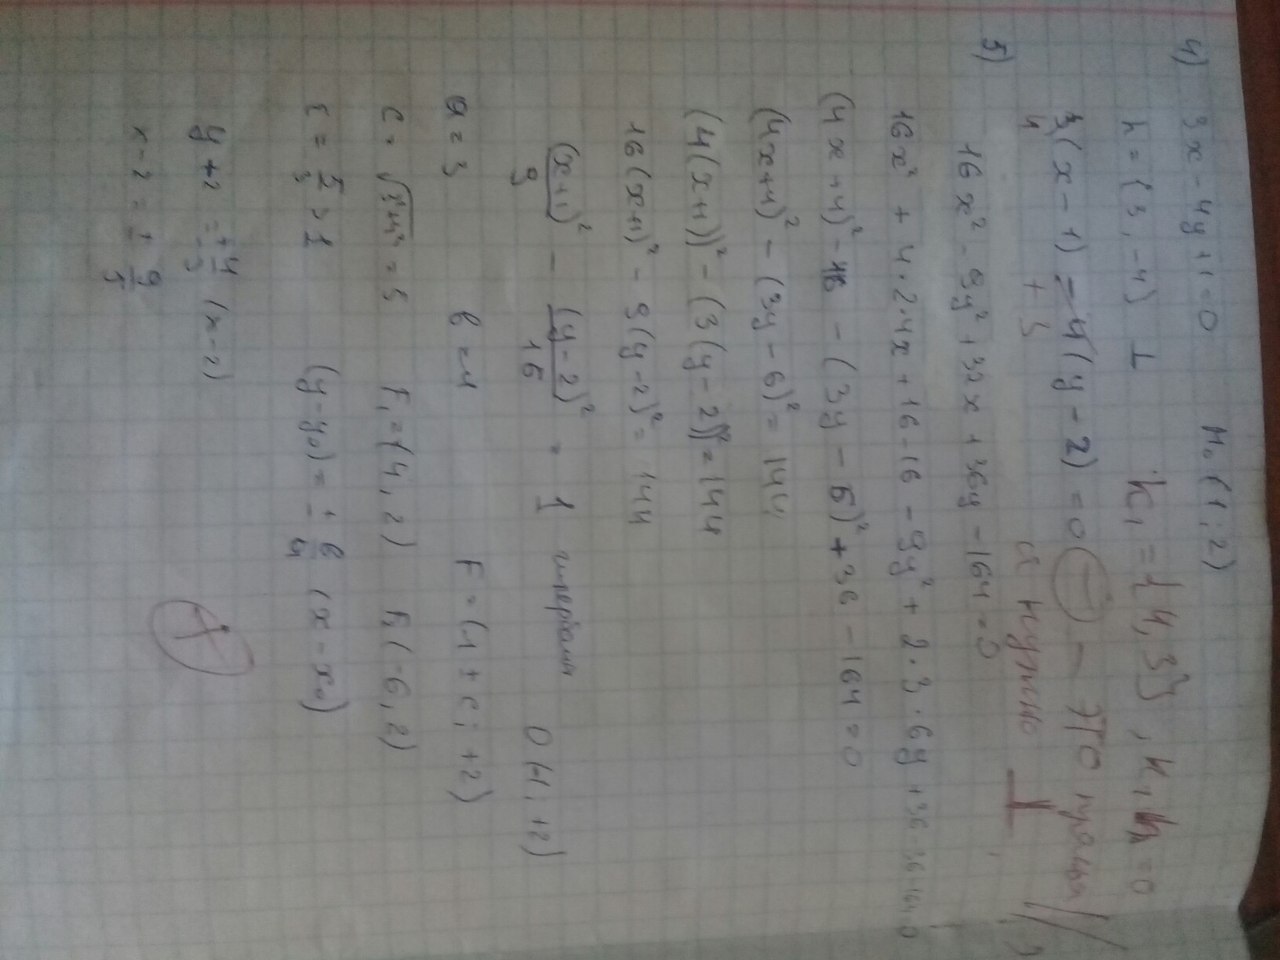 4) 3x - 4y + 1 = 0 M₀ (1; 2)
n = {3, -4} ⊥ k₁ = {4, 3}, k₁ n = 0
3(x - 1) - 4(y - 2) = 0 ⊖ — это прямая //,
4 + 3 а нужно ⊥
5)
16x² - 9y² + 32x + 36y - 164 = 0
16x² + 4·2·4x + 16 - 16 - 9y² + 2·3·6y + 36 - 36 - 164 = 0
(4x + 4)² - 16 - (3y - 6)² + 36 - 164 = 0
(4x + 4)² - (3y - 6)² = 144
(4(x+1))² - (3(y - 2))² = 144
16(x+1)² - 9(y-2)² = 144
(x+1)²/9 - (y-2)²/16 = 1 гипербола O (-1, +2)
a = 3 b = 4 F = (-1 ± c; +2)
c = √3²+4² = 5 F₁ = (4, 2) F₂ (-6, 2)
ε = 5/3 > 1 (y - y₀) = ± b/a (x - x₀)
y + 2 = ± 4/3 (x - 2) +
x - 2 = ± 9/5